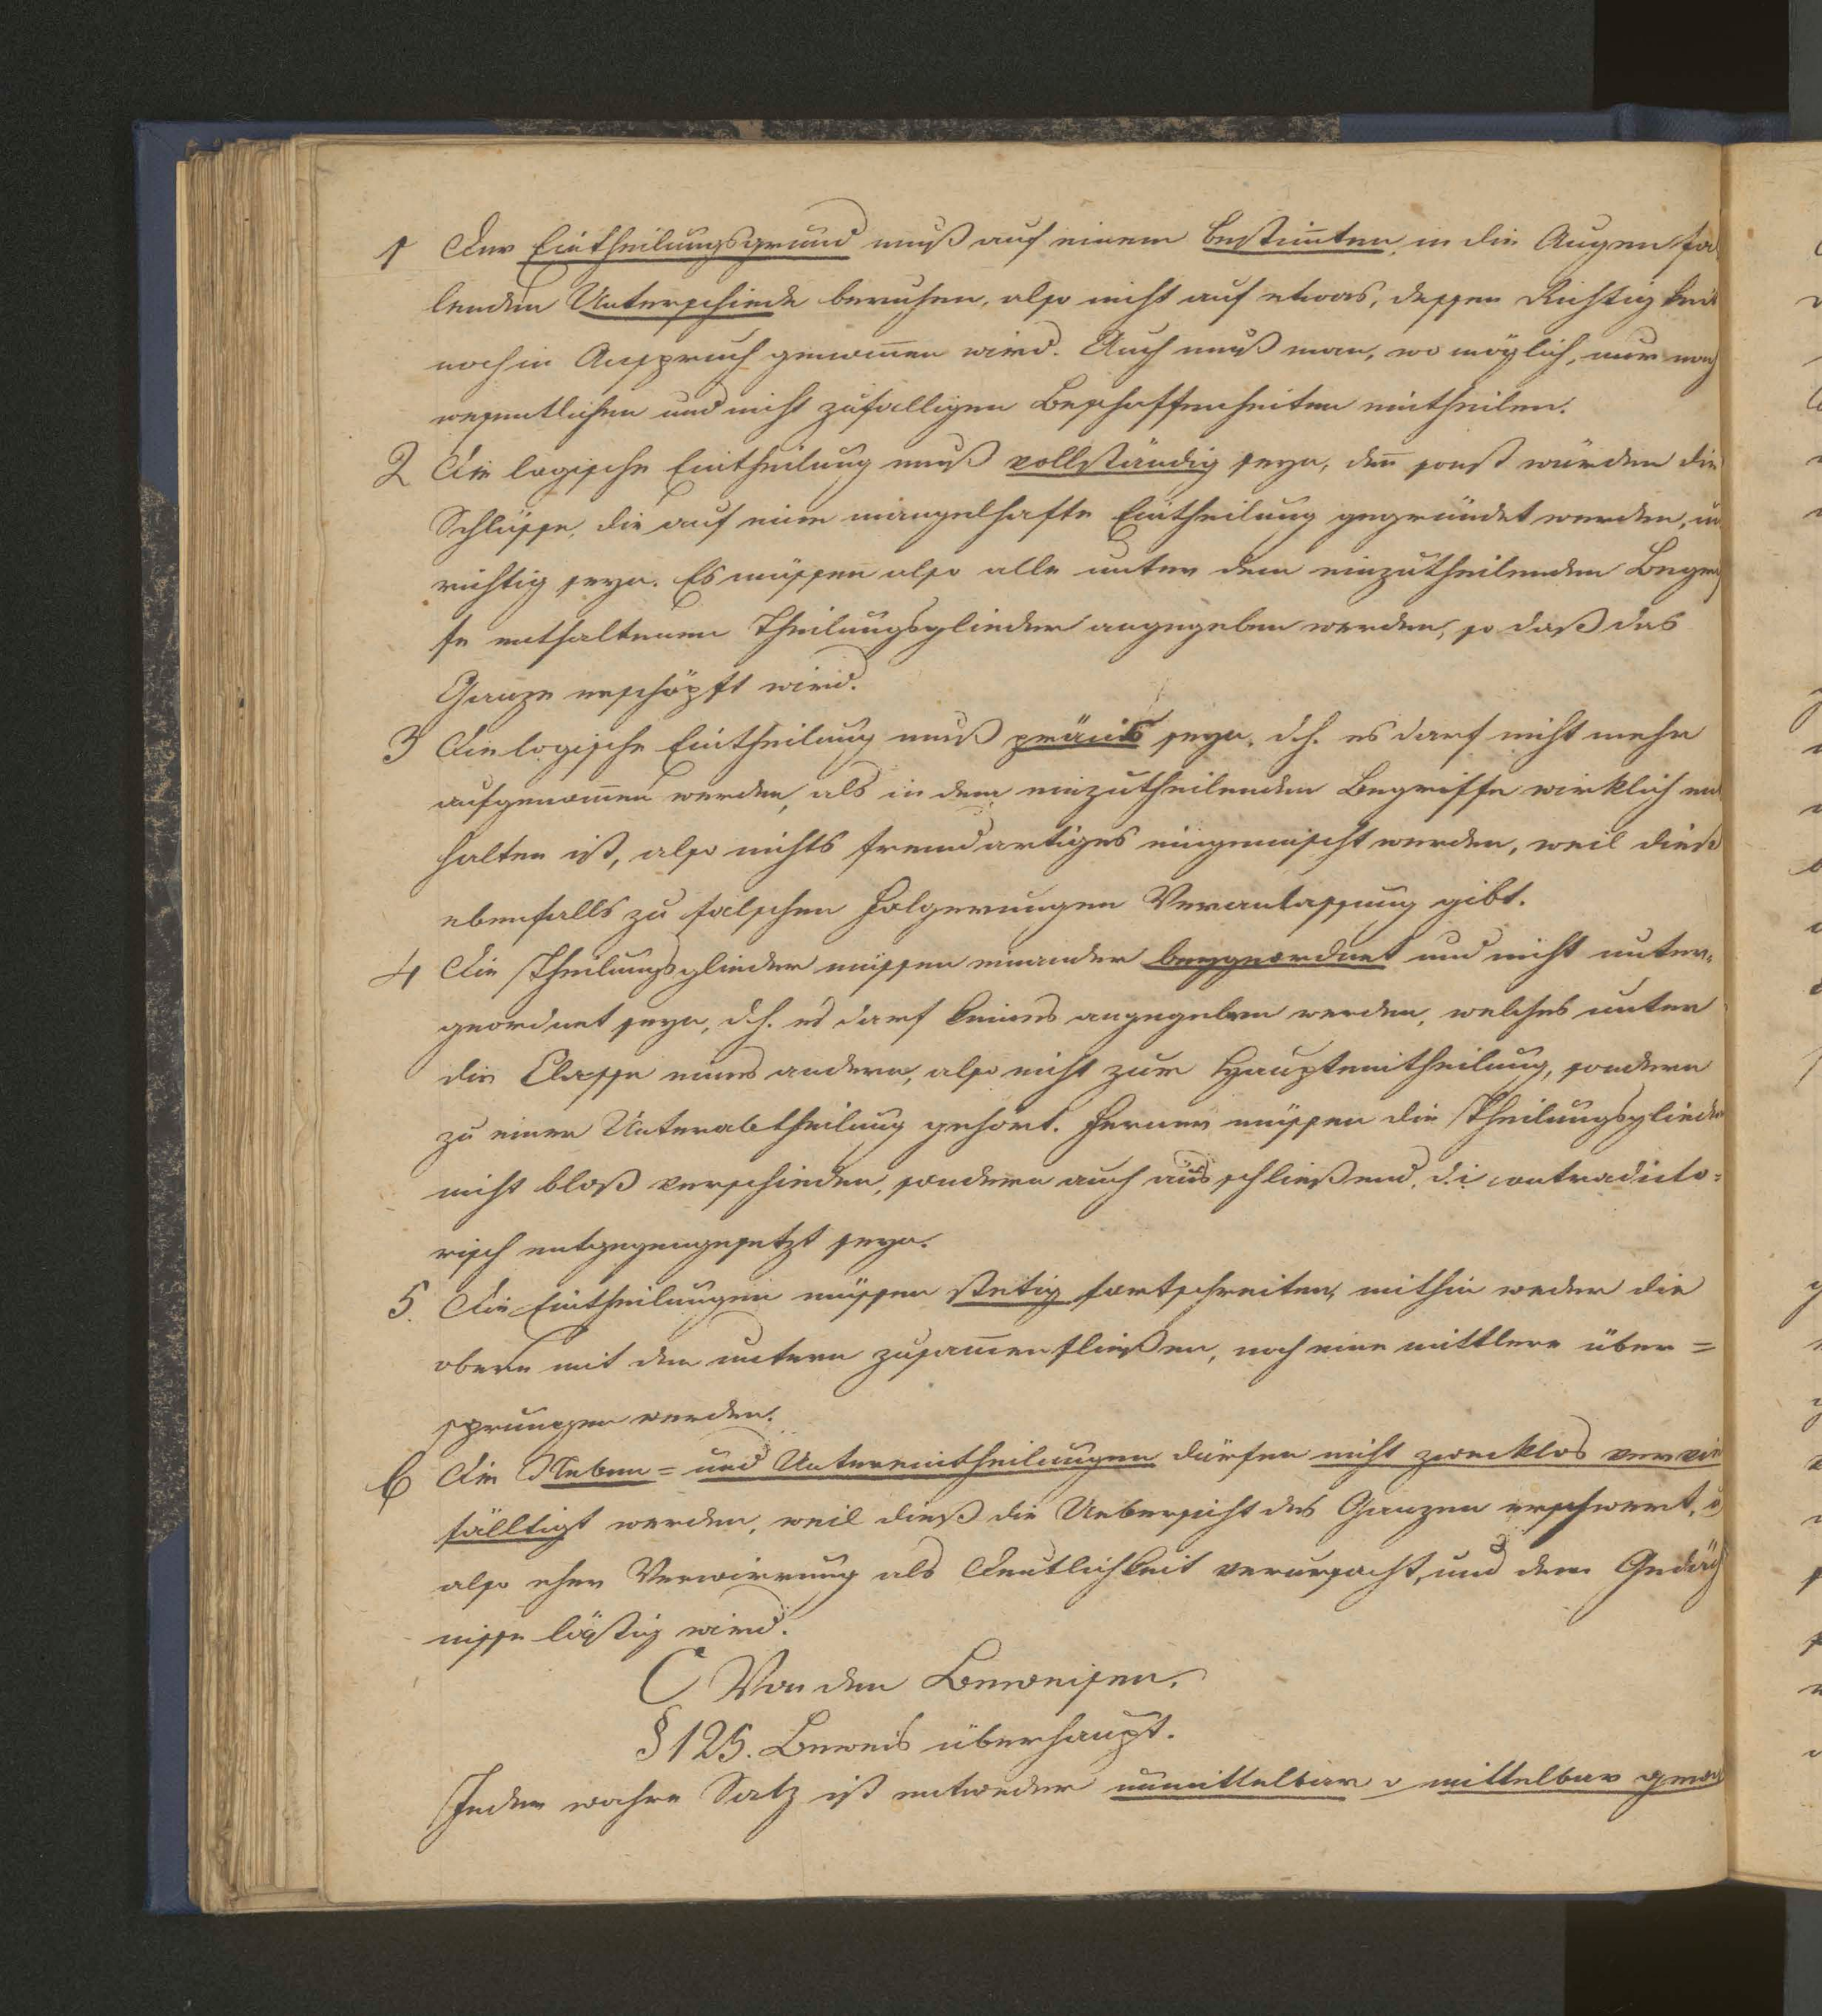 1 Der Eintheilungsgrund muß auf einem bestim̅ten, in die Augen fal
lenden Unterschiede beruhen, also nicht auf etwas, dessen Richtigkeit
noch in Anspruch genom̅en wird. Auch muß man, wo möglich, nur nach
wesentlichen und nicht zufälligen Beschaffenheiten eintheilen.
2 Die logische Eintheilung muß vollständig seyn, den̅ sonst würden die
Schlüsse, die auf eine mangelhafte Eintheilung gegründet werden, un
richtig seyn. Es müssen also alle unter dem einzutheilenden Begrif
fe enthaltenen Theilungsglieder angegeben werden, so daß das
Ganze erschöpft wird.
3 Die logische Eintheilung muß präcis seyn, d.h. es darf nicht mehr
aufgenom̅en werden, als in dem einzutheilenden Begriffe wirklich ent
halten ist, also nichts fremdartiges eingemischt werden, weil dieß
ebenfalls zu falschen Folgerungen Veranlassung gibt.
4 Die Theilungsglieder müssen einander beygeordnet und nicht unter-
geordnet seyn, d.h. es darf keines angegeben werden, welches unter
die Classe eines andern, also nicht zur Haupteintheilung, sondern
zu einer Unterabtheilung gehört. Ferner müssen die Theilungsglieder
nicht bloß verschieden, sondern auch ausschließend, d.i contradicto=
risch entgegengesetzt seyn.
5. Die Eintheilungen müssen stetig fortschreiten, mithin weder die
obern mit den untern zusam̅enfließen, noch eine mittlere über=
sprungen werden.
6 Die Neben= und Untereintheilungen dürfen nicht zwecklos verviel
fälltigt werden, weil dieß die Uebersicht des Ganzen erschwert, u
also eher Verwirrung als Deutlichkeit verursacht, und dem Gedächt
nisse lästig wird.
C Von den Beweisen.
§ 125. Beweis überhaupt.
Jeder wahre Satz ist entweder unmittelbar o mittelbar gewiß